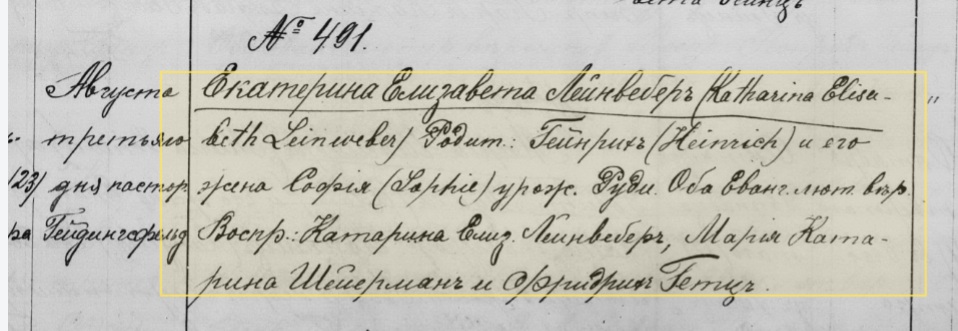 № 491.
Августа Екатерина Елизавета Лейнвеберъ (Katharina Elisa-
третьяго beth Leinweber) Родит.: Гейнрихъ (Heinrich) и его
/23/ дня пастор жена Софія (Sophie) урож. Руди. Оба Еванг. лют. вѣр.
ра Гейдингсфельд Воспр.: Катарина Елиз. Лейнвеберъ, Марія Ката-
рина Шейерманъ и Фридрихъ Гетцъ.